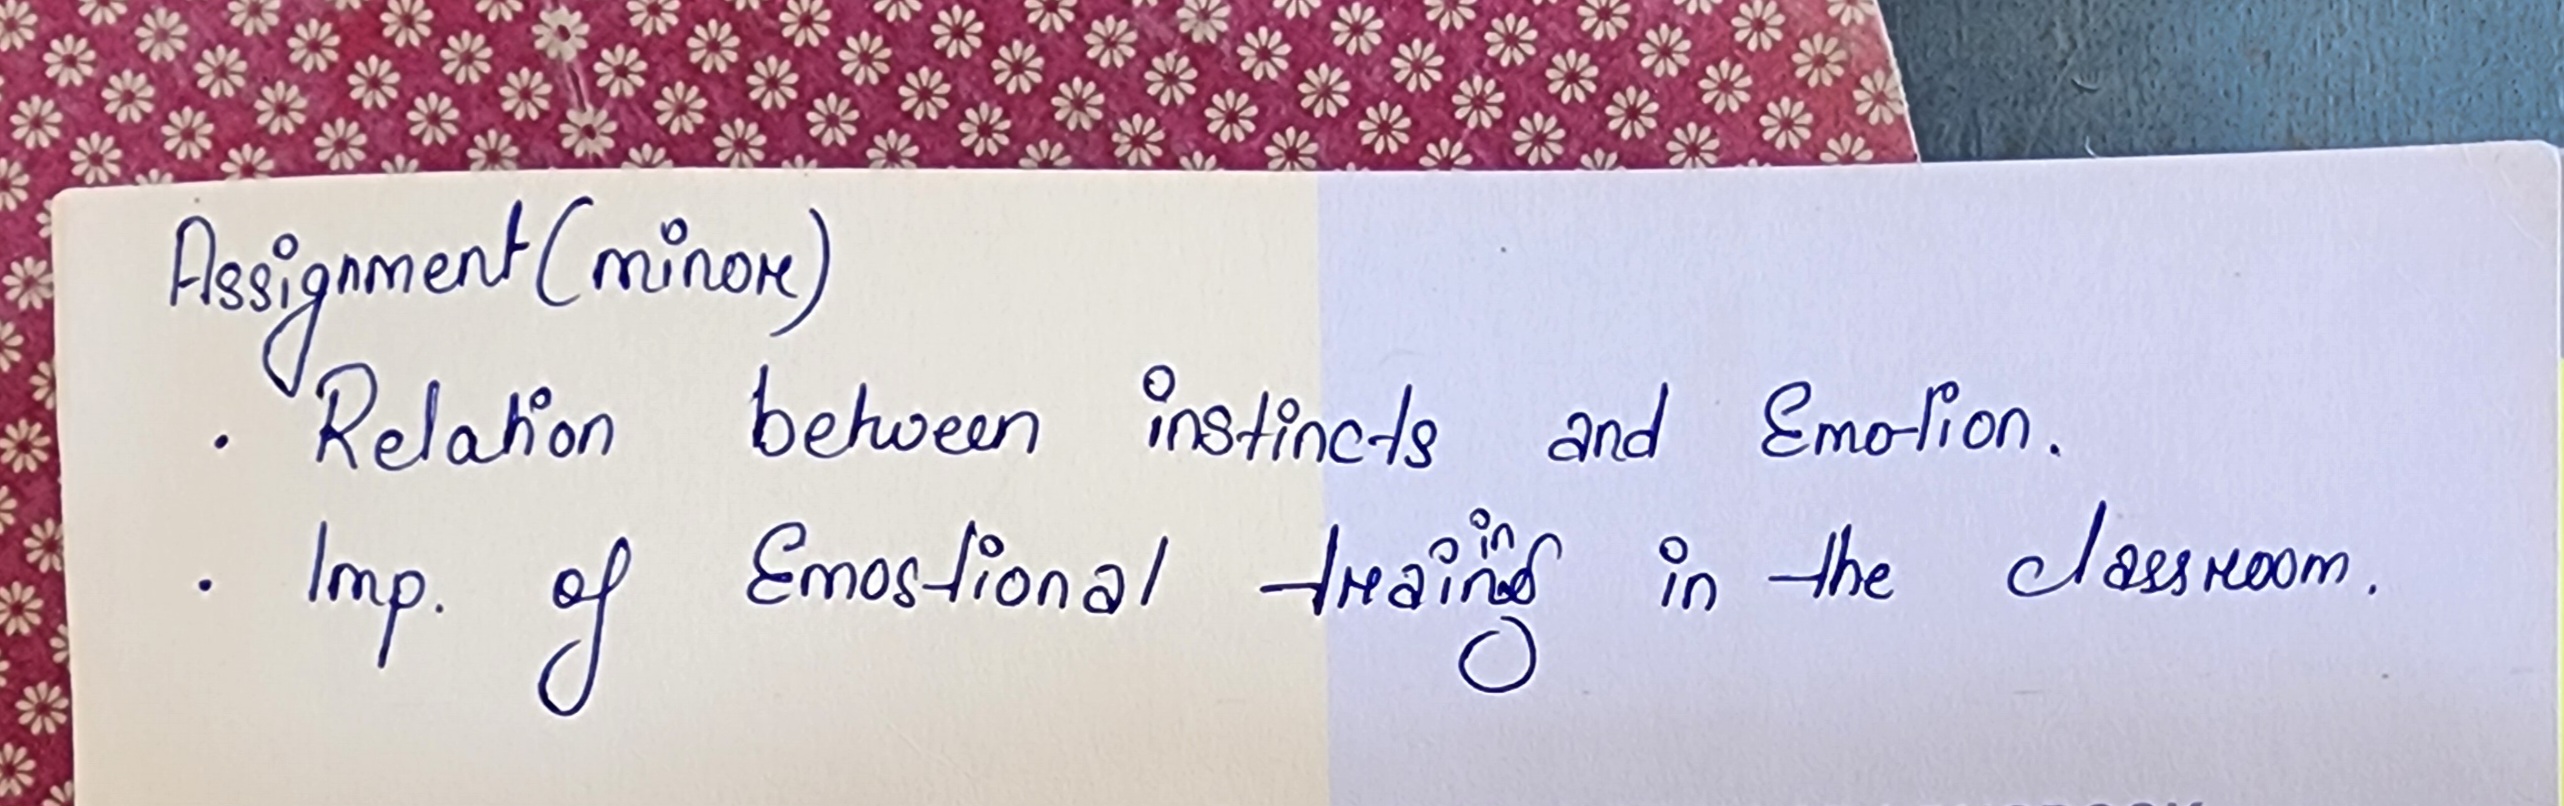 Assignment (minor)
. Relation between instincts and Emotion.
. Imp. of Emostional training in the classroom.